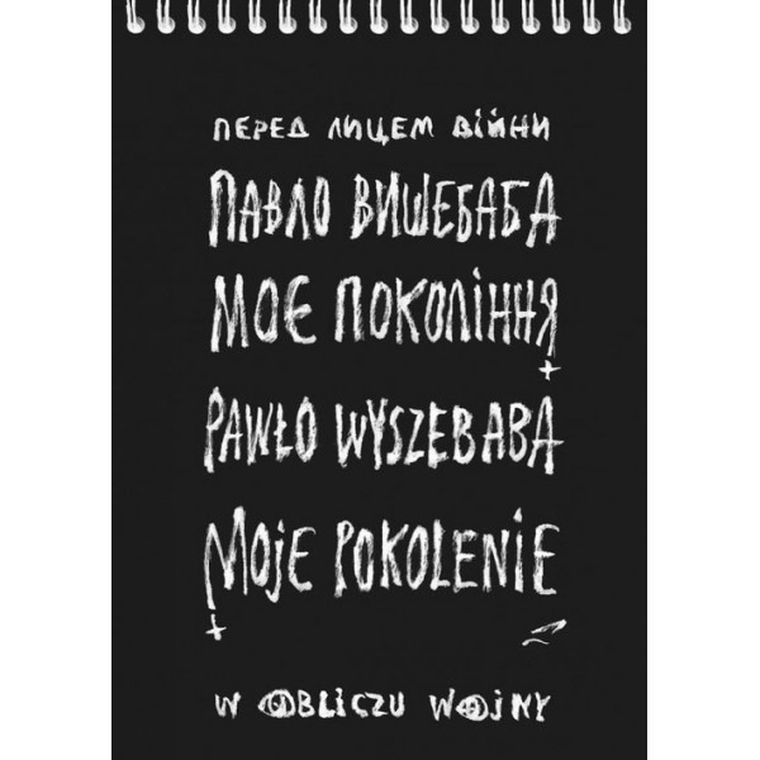 ПЕРЕД ЛИЦЕМ ВІЙНИ
ПАВЛО ВИШЕБАБА
МОЄ ПОКОЛІННЯ
PAWŁO WYSZEBABA
MOJE POKOLENIE
W OBLICZU WOJNY